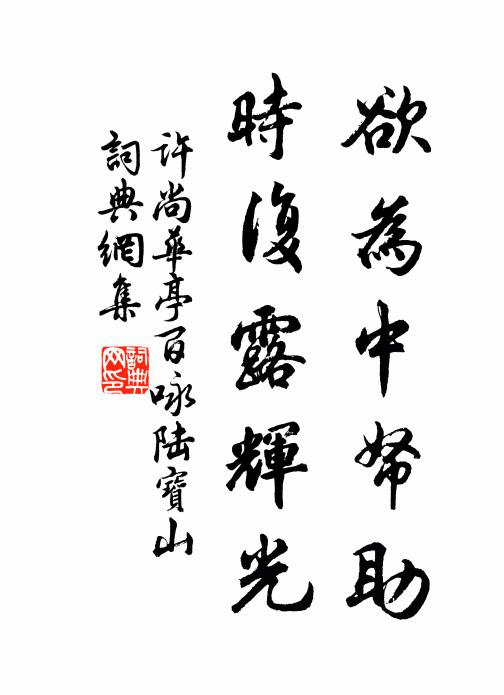 欲為中帑助
時復露輝光
許尚華亭百咏陸寶山
詞典網集
詞典网印